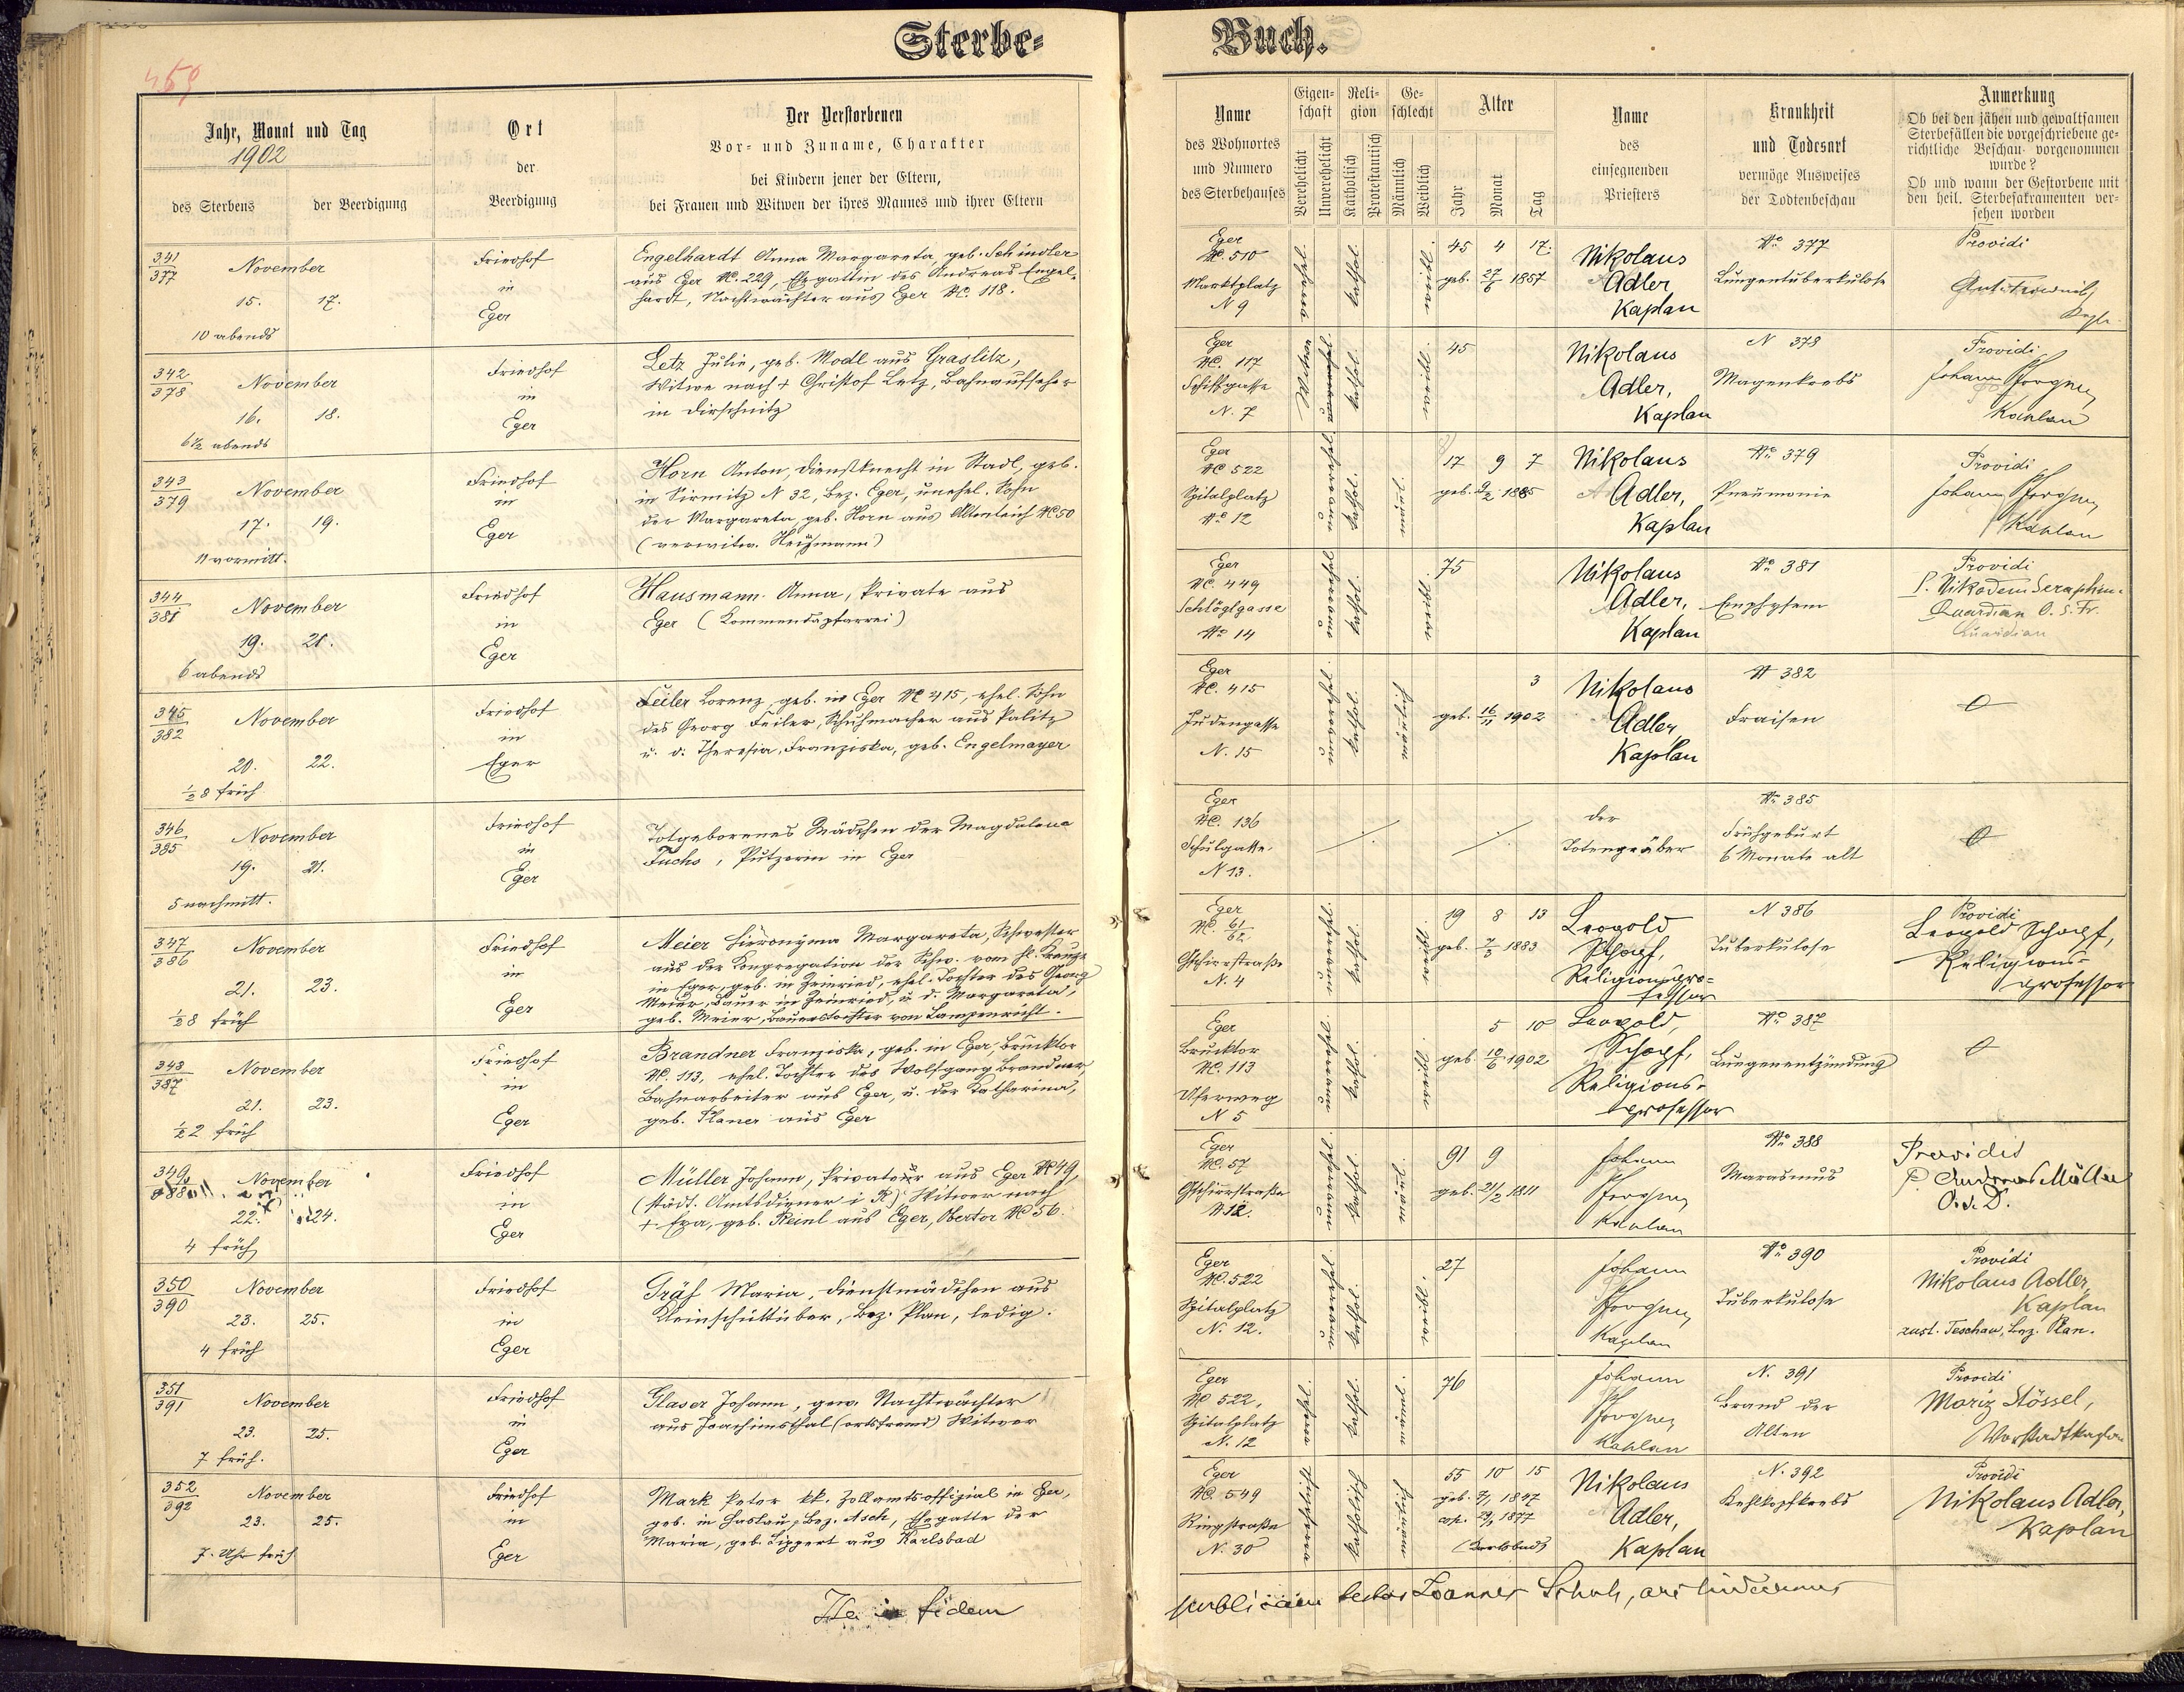 Sterbe-
Buch.
469
Jahr, Monat und Tag
1902
des Sterbens
der Beerdigung
Ort
der
Beerdigung
Der Verstorbenen
Vor- und Zuname, Charakter
bei Kindern jener der Eltern,
bei Frauen und Witwen der ihres Mannes und ihrer Eltern
Name
des Wohnortes
und Numero
des Sterbehauses
Eigen-
schaft
Verehelicht
Unverehelicht
Reli-
gion
Katholisch
Protestantisch
Ge-
schlecht
Männlich
Weiblich
Alter
Jahr
Monat
Tag
Name
des
einsegnenden
Priesters
Krankheit
und Todesart
vermöge Ausweises
der Todtenbeschau
Anmerkung
Ob bei den jähen und gewaltsamen
Sterbefällen die vorgeschriebene ge-
richtliche Beschau vorgenommen
wurde?
Ob und wann der Gestorbene mit
den heil. Sterbesakramenten ver-
sehen worden
341
377
November
15. 17.
10 abends
Friedhof
in
Eger
Engelhardt Anna Margareta, geb. Schindler
aus Eger NC. 229, Ehegattin des Andreas Engel-
hardt, Nachtwächter aus Eger NC. 118.
Eger
NC. 510
Marktplatz
N 9
verehel.
kathol.
weibl.
45 4 17.
geb. 27/6 1857
Nikolaus
Adler
Kaplan
No 377
Lungentuberkulose
Providi
342
378
November
16. 18.
6 1/2 abends
Friedhof
in
Eger
Letz Julie, geb. Modl aus Graslitz,
Witwe nach + Christof Letz, Bahnaufseher
in Dirschnitz
Eger
NC. 117
Schiffgasse
N. 7
Witwe
kathol.
weibl.
45
Nikolaus
Adler,
Kaplan
N 378
Magenkrebs
Providi
Johann
Kaplan
343
379
November
17. 19.
11 vormitt.
Friedhof
in
Eger
Horn Anton, Dienstknecht in Stadl, geb.
in Sirmitz N 32, Bez. Eger, unehel. Sohn
der Margareta, geb. Horn aus Altenteich NC 50
(verwitw. Heißmann)
Eger
NC 522
Spitalplatz
No 12
unverehel.
kathol.
männl.
17 9 7
geb. 9/2 1885
Nikolaus
Adler,
Kaplan
No 379
Pneumonie
Providi
Johann
Kaplan
344
381
November
19. 21.
6 abends
Friedhof
in
Eger
Hausmann Anna, Private aus
Eger (Kommendapfarrei)
Eger
NC 449
Schlöglgasse
No 14
unverehel.
kathol.
weibl.
75
Nikolaus
Adler,
Kaplan
No 381
Emphysem
Providi
P. Nikodem Seraphin.
Quardian O. S. Fr.
Guardian
345
382
November
20. 22.
1/2 8 früh
Friedhof
in
Eger
Feiler Lorenz, geb. in Eger NC 415, ehel. Sohn
des Georg Feiler, Schuhmacher aus Palitz
u. d. Theresia, Franziska, geb. Engelmayer
Eger
NC. 415
Judengasse
N. 15
unverehel.
kathol.
männlich
3
geb. 16/11 1902
Nikolaus
Adler
Kaplan
N 382
Fraisen
346
385
November
19. 21.
5 nachmitt.
Friedhof
in
Eger
Totgeborenes Mädchen der Magdalena
Fuchs, Putzerin in Eger
Eger
NC. 136
Schulgasse
N 13.
der
Totengräber
No 385
Frühgeburt
6 Monate alt
347
386
November
21. 23.
1/2 8 früh
Friedhof
in
Eger
Meier Hieronyma Margareta, Schwester
aus der Kongregation der Schw. vom hl. Kreuze
in Eger, geb. in Heinried, ehel. Tochter des Georg
Meier, Bauer in Heinried, u. d. Margareta,
geb. Meier, Bauerstochter von Lampenricht.
Eger
NC. 61/62
Gschierstraße
N. 4
unverehl.
kathol.
weibl.
19 8 13
geb. 7/3 1883
Leopold
Schopf,
Religionspro-
fessor
N 386
Tuberkulose
Providi
Leopold Schopf,
Religions-
professor
348
387
November
21. 23.
1/2 2 früh
Friedhof
in
Eger
Brandner Franziska, geb. in Eger, Brucktor
NC. 113, ehel. Tochter des Wolfgang Brandner
Bahnarbeiter aus Eger, u. der Katharina,
geb. Planer aus Eger
Eger
Brucktor
NC. 113
Uferweg
N 5
unverehel.
kathol.
weibl.
5 10
geb. 10/6 1902
Leopold,
Schopf,
Religions-
professor
No 387
Lungenentzündung
349
388
November
22. 24.
4 früh
Friedhof
in
Eger
Müller Johann, Privater aus Eger NC 49,
(städt. Amtsdiener i. R.) Witwer nach
+ Eva, geb. Reinl aus Eger, Obertor NC 56.
Eger
NC. 57
Gschierstraße
N 12.
kathol.
männl.
91 9
geb. 21/2 1811
Johann
Kaplan
No 388
Marasmus
Providi
P. Andreas Müller
O. s. D.
350
390
November
23. 25.
4 früh
Friedhof
in
Eger
Gräf Maria, Dienstmädchen aus
Kleinschüttüber, Bez. Plan, ledig.
Eger
NC. 522
Spitalplatz
N. 12.
unverehel.
kathol.
weibl.
27
Johann
Kaplan
No 390
Tuberkulose
Providi
Nikolaus Adler,
Kaplan
zust. Teschau, Bez. Plan.
351
391
November
23. 25.
7 früh.
Friedhof
in
Eger
Glaser Johann, gew. Nachtwächter
aus Joachimsthal (ortsfremd) Witwer
Eger
NC 522,
Spitalplatz
N. 12
verehel.
kathol.
männl.
76
Johann
Kaplan
N. 391
Brand der
Alten
Providi
Moriz Stössel,
Vorstadtkaplan
352
392
November
23. 25.
7. Uhr früh
Friedhof
in
Eger
Mark Peter kk. Zollamtsoffizial in Eger,
geb. in Haslau, Bez. Asch, Ehegatte der
Maria, geb. Lippert aus Karlsbad
Eger
NC. 549
Ringstraße
N. 30
verehelicht
katholisch
männlich
55 10 15
geb. 1847
cop. 1877
(Karlsbad)
Nikolaus
Adler,
Kaplan
N. 392
Kehlkopfkrebs
Providi
Nikolaus Adler,
Kaplan
Ita in fidem